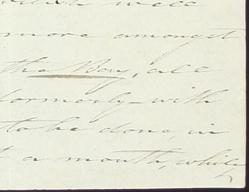 well
more amongst
the Bay, all
formerly - with
to be done, in
a month, while